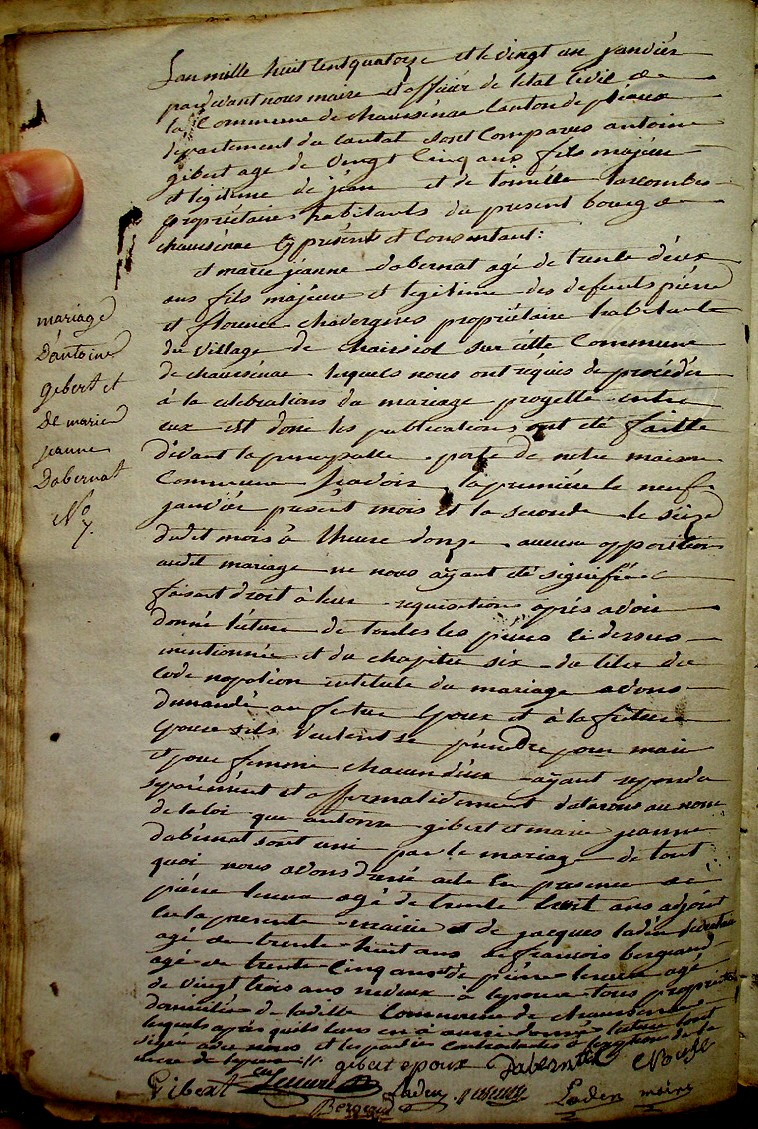 Lan mille huit cent quatorze et le vingt un janvier
pardevant nous maire et officier de letat civil de
la Commune de chaussenac Canton de pléaux
département du Cantal sont Comparus antoine
gibert age de vingt Cinq ans fils majeur
et legitime de jean et de lascombes
propriétaires habitants du present bourg de
chaussenac cy présent et Consentant :
et marie jeanne dabernat agé de trente deux
ans fils majeure et legitime des defunts pierre
et florence chavergnes propriétaire habitante
du village de sur cette Commune
de chaussenac lesquels nous ont réquis de procéder
à la celebrations du mariage projetté entre
eux et dont les publications ont été faitte
devant la principalle porte de notre maison
Commune savoir la première le neuf
janvier présent mois et la seconde le seize
dudit mois à lheure donze aucune opposition
audit mariage ne nous ayant été signifiée
faisant droit à leur requisitions après avoir
donné lecture de toutes les pieces cidessus
mentionnée et du chapitre six du titre du
Code napoléon intitulé du mariage avons
demandé au futur Epoux et à la future
Epouse sils veulent se prendre pour mari
et pour femme chacun deux ayant repondu
séparément et affirmativement déclarons au nom
de la loi que antoine gibert et marie jeanne
dabernat sont uni par le mariage de tout
quoi nous avons dressé acte En presence de
pierre agé de trente huit ans adjoint
de la presente mairie et de jacques laden
agé de trente huit ans de francois bergeaud
agé de trente Cinq ans et de pierre agé
de vingt trois ans neveux à lepouse tous propriétaires
domiciliés de ladite Commune de chaussenac
lesquels après quils leurs en a aussi donné lecture lont
signé avec nous et les parties contractantes à de la
mere de lepoux
gibert epoux Dabernat Epouse
Gibert Laden
Bergeaud Laden maire
mariage
Dantoine
gibert et
De marie
jeanne
Dabernat
No
7.